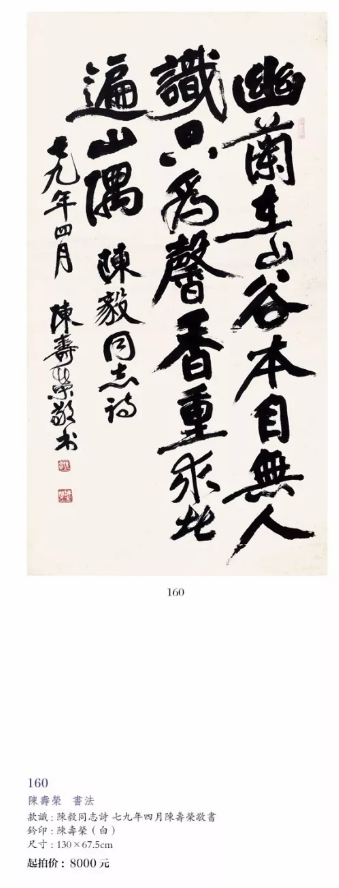 幽蘭在山谷本自無人
識只為馨香重求者
遍山隅 陳毅同志詩
七九年四月 陳壽榮敬书
160
160
陳壽榮 書法
款識：陳毅同志詩 七九年四月陳壽榮敬書
鈐印：陳壽榮（白）
尺寸：130×67.5cm
起拍价：8000 元